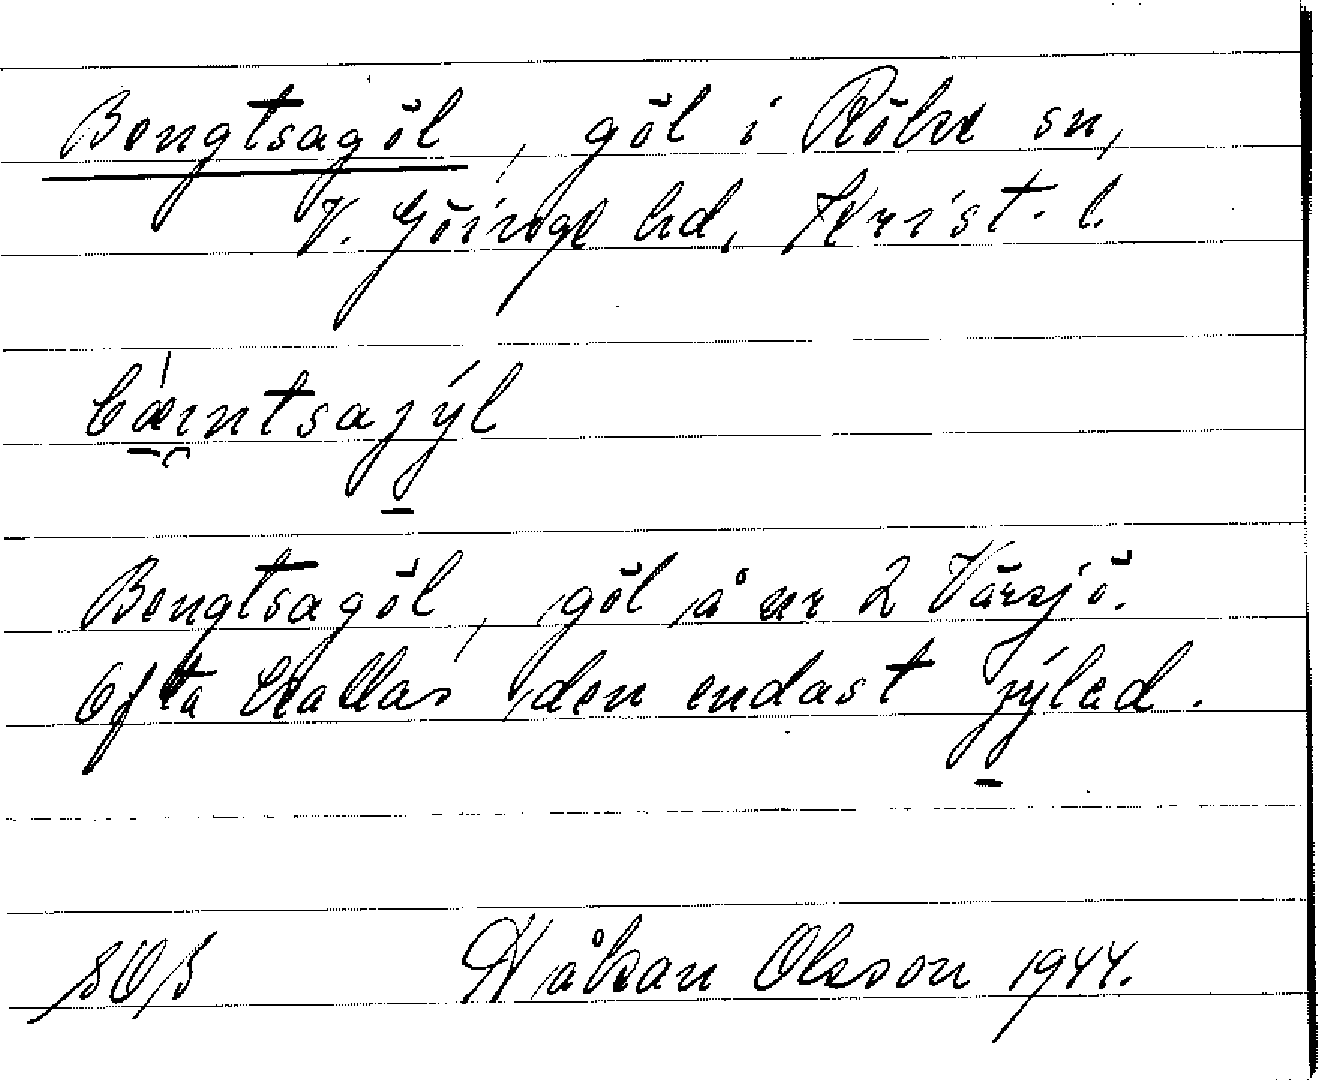 Bengtsagöl, göl i Röke sn,
V. Göinge hd, Krist. l.
bæi̯ntsajýl
Bengtsagöl, göl å nr 2 Vårsjö.
Ofta kallas den endast jýled.
Håkan Olsson 1944.